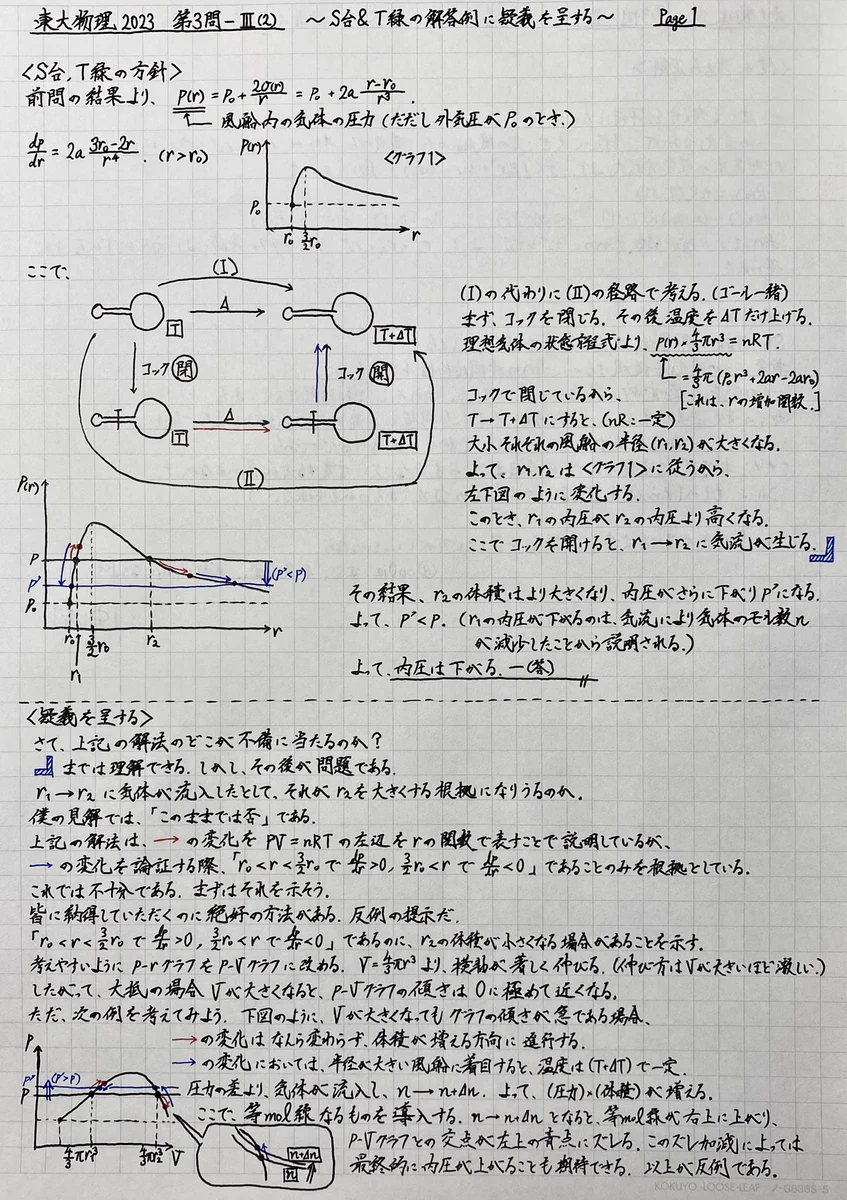 東大物理2023 第3問-Ⅲ(2) 〜S台&T緑の解答例に疑義を呈する〜 Page 1
<S台,T緑の方針>
前問の結果より、 p(r) = P₀ + 2σ(r)/r = P₀ + 2a (r-r₀)/r³ .
風船内の気体の圧力 (ただし外気圧がP₀のとき.)
dp/dr = 2a (3r₀-2r)/r⁴ . (r>r₀)
P(r)
<グラフ1>
P₀
r₀ 3/2r₀ r
ここで、
(Ⅰ)
T
Δ
T+ΔT
コック開
コック開
T
Δ
T+ΔT
(Ⅱ)
(Ⅰ)の代わりに(Ⅱ)の経路で考える. (ゴール一緒)
まず、コックを閉じる. その後温度をΔTだけ上げる.
理想気体の状態方程式より、p(r)・4/3πr³ = nRT.
= 4/3π (P₀r³+2ar-2ar₀)
[これは、rの増加関数.]
コックで閉じているから、
T→T+ΔTにすると、(nR:一定)
大小それぞれの風船の半径(r₁,r₂)が大きくなる.
よって、r₁,r₂は<グラフ1>に従うから、
左下図のように変化する.
このとき、r₁の内圧がr₂の内圧より高くなる.
ここでコックを開けると、r₁→r₂に気流が生じる.
P(r)
P
P'
P₀
(P'<P)
r₀ 3/2r₀ r₂ r
r₁
その結果、r₂の体積はより大きくなり、内圧がさらに下がりP'になる.
よって、P'<P. (r₁の内圧が下がるのは、気流により気体のモル数n
が減少したことから説明される.)
よって、内圧は下がる. ー(答)
<疑義を呈する>
さて、上記の解法のどこが不備に当たるのか?
までは理解できる. しかし、その後が問題である.
r₁→r₂に気体が流入したとして、それがr₂を大きくする根拠になりうるのか.
僕の見解では、「このままでは否」である.
上記の解法は、→の変化をPV=nRTの左辺をrの関数で表すことで説明しているが、
→の変化を論証する際、「r₀<r<3/2r₀でdp/dr>0, 3/2r₀<rでdp/dr<0」であることのみを根拠としている.
これでは不十分である. まずはそれを示そう.
皆に納得していただくのに絶好の方法がある. 反例の提示だ.
「r₀<r<3/2r₀でdp/dr>0, 3/2r₀<rでdp/dr<0」であるのに、r₂の体積が小さくなる場合があることを示す.
考えやすいようにp-rグラフをp-Vグラフに改める. V=4/3πr³より、横軸が著しく伸びる. (伸び方はVが大きいほど激しい.)
したがって、大抵の場合Vが大きくなると、p-Vグラフの傾きは0に極めて近くなる.
ただ、次の例を考えてみよう. 下図のように、Vが大きくなってもグラフの傾きが急である場合、
→の変化はなんら変わらず、体積が増える方向に進行する.
→の変化においては、半径が大きい風船に着目すると、温度は(T+ΔT)で一定.
圧力の差より、気体が流入し、n→n+Δn. よって、(圧力)×(体積)が増える.
ここで、等mol線なるものを導入する. n→n+Δnとなると、等mol線が右上に上がり、
P-Vグラフとの交点が左上の青点にズレる. このズレ加減によっては
最終的に内圧が上がることも期待できる. 以上が反例である.
P
P'
P
(P'>P)
4/3πr₁³ 4/3πr₂³ V
n+Δn
n
KOKUYO LOOSE-LEAF ノ-G836S-5